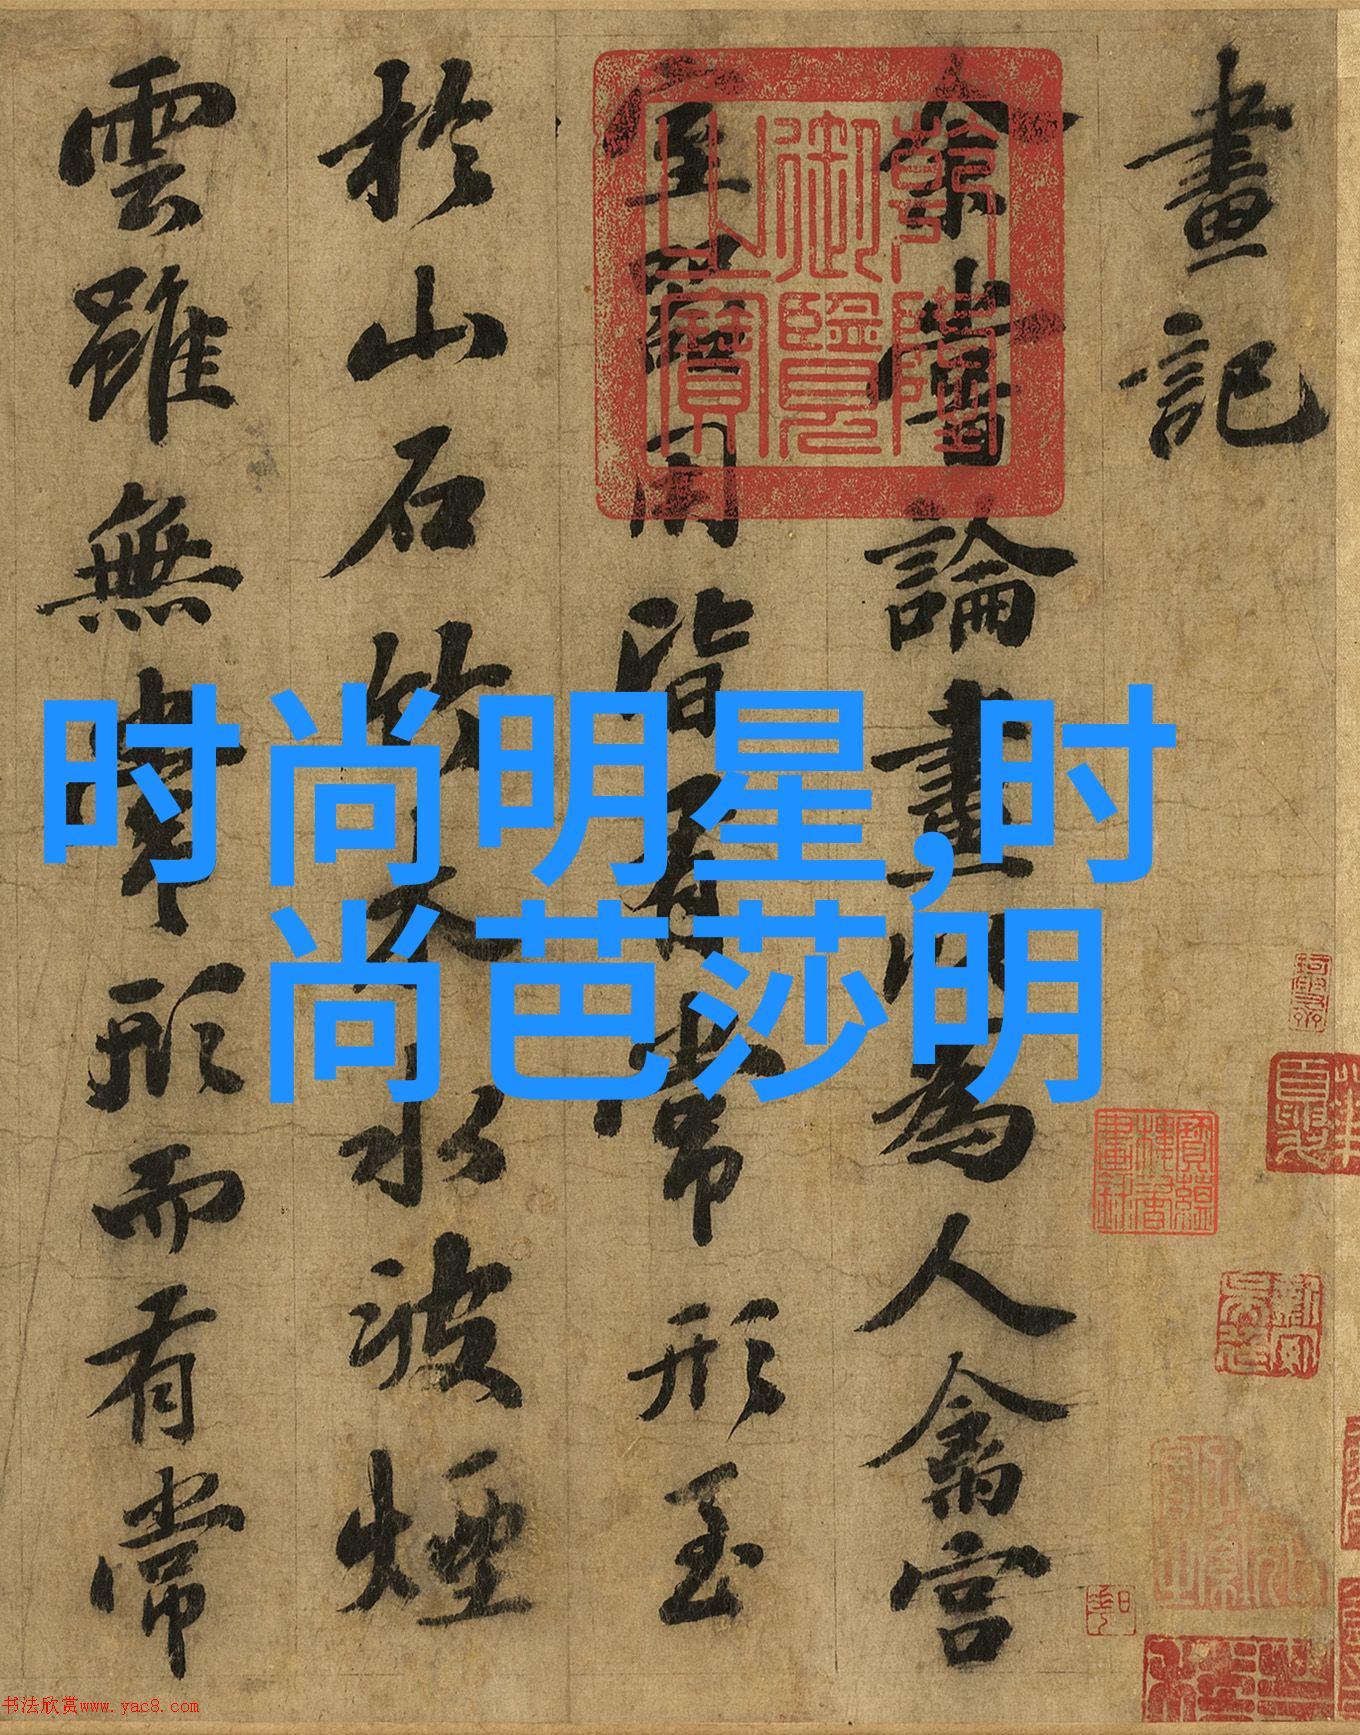 畫記
余嘗論畫以為人禽宮
室器用皆有常形至
於山石竹木水波煙
雲雖無常形而有常
乾隆御覽之寶
时尚明星,时
尚芭莎明
书法欣赏www.yac8.com